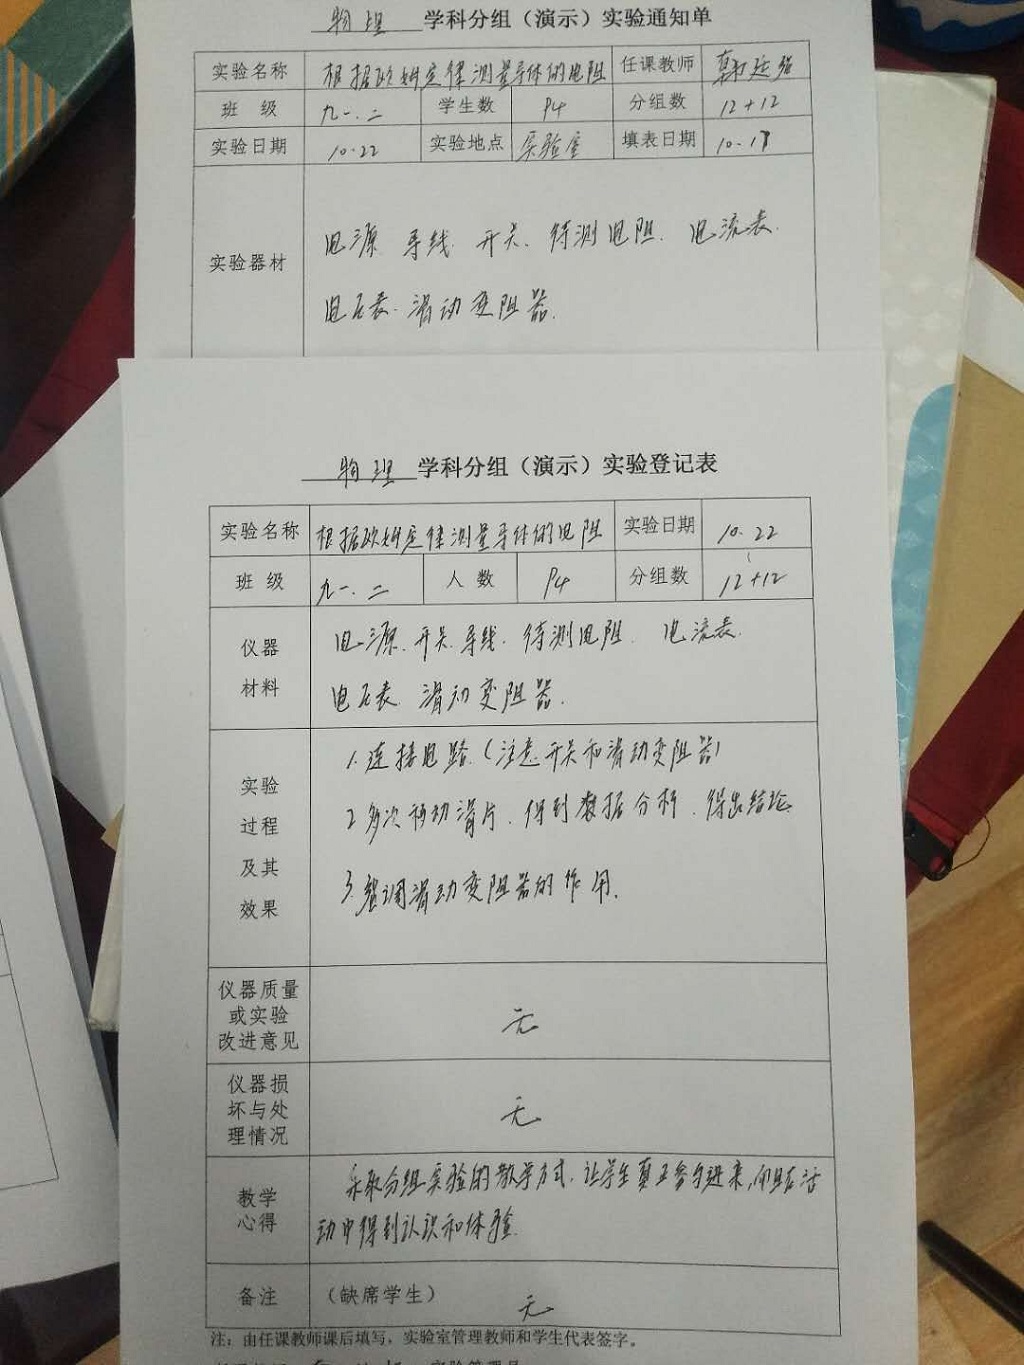 物理 学科分组（演示）实验通知单
实验名称 根据欧姆定律测量导体的电阻 任课教师
班 级 九一.二 学生数 94 分组数 12+12
实验日期 10.22 实验地点 实验室 填表日期
实验器材
电源 导线 开关、待测电阻、电流表
电压表、滑动变阻器.
物理 学科分组（演示）实验登记表
实验名称 根据欧姆定律测量导体的电阻 实验日期 10.22
班 级 九一.二 人 数 94 分组数 12+12
仪器
材料
电源、开关、导线、待测电阻、电流表
电压表、滑动变阻器.
实验
过程
及其
效果
1.连接电路.(注意开关和滑动变阻器)
2.多次移动滑片、得到数据分析、得出结论
3.强调滑动变阻器的作用.
仪器质量
或实验
改进意见
无
仪器损
坏与处
理情况
无
教学
心得
采取分组实验的教学方式、让学生真正参与进来,并且在活
动中得到认识和体验
备注 （缺席学生） 无
注：由任课教师课后填写，实验室管理教师和学生代表签字。